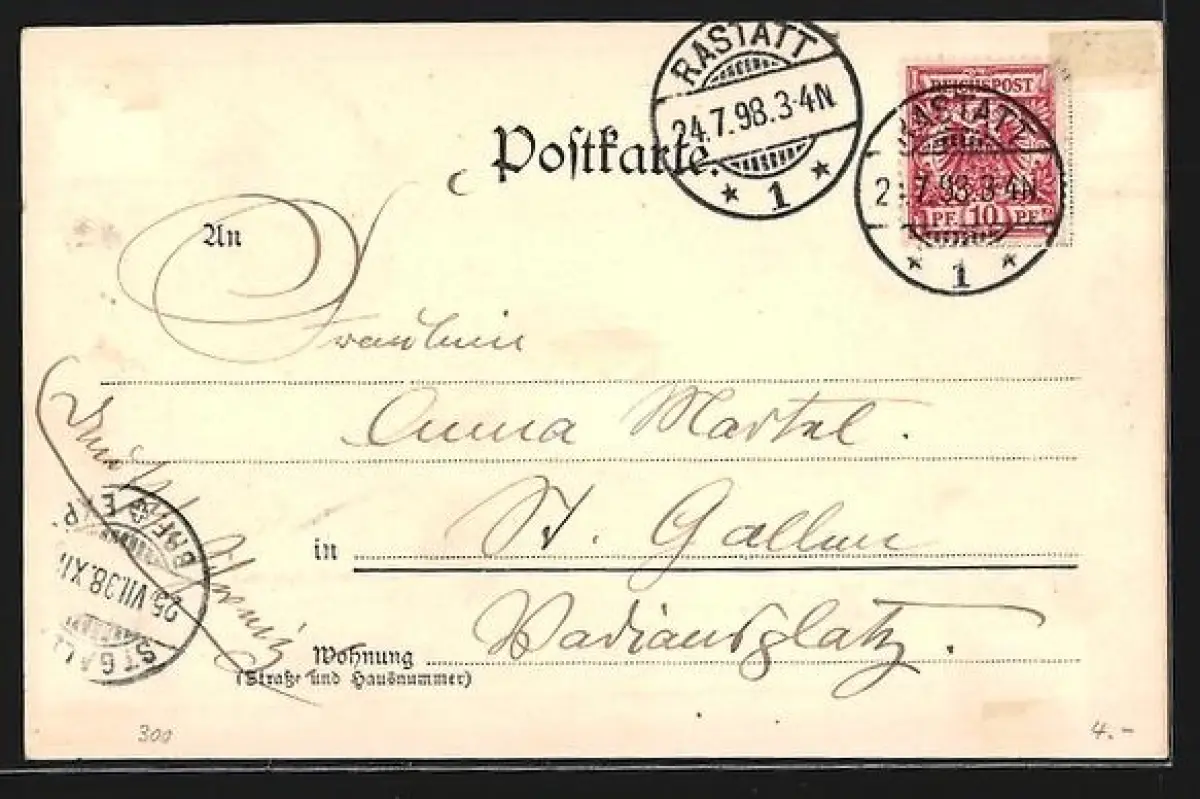 RASTATT
24.7.98.3-4N
* 1 *
REICHSPOST
PF. 10 PF.
RASTATT
2 7.98.3-4N
* 1 *
Postkarte.
An
Fräulein
Anna Martel.
in St. Gallen
Wohnung Vadiansplatz.
(Straße und Hausnummer)
ST. GALL
25.VII.98.XI
BRF. EXP.
300
4.-